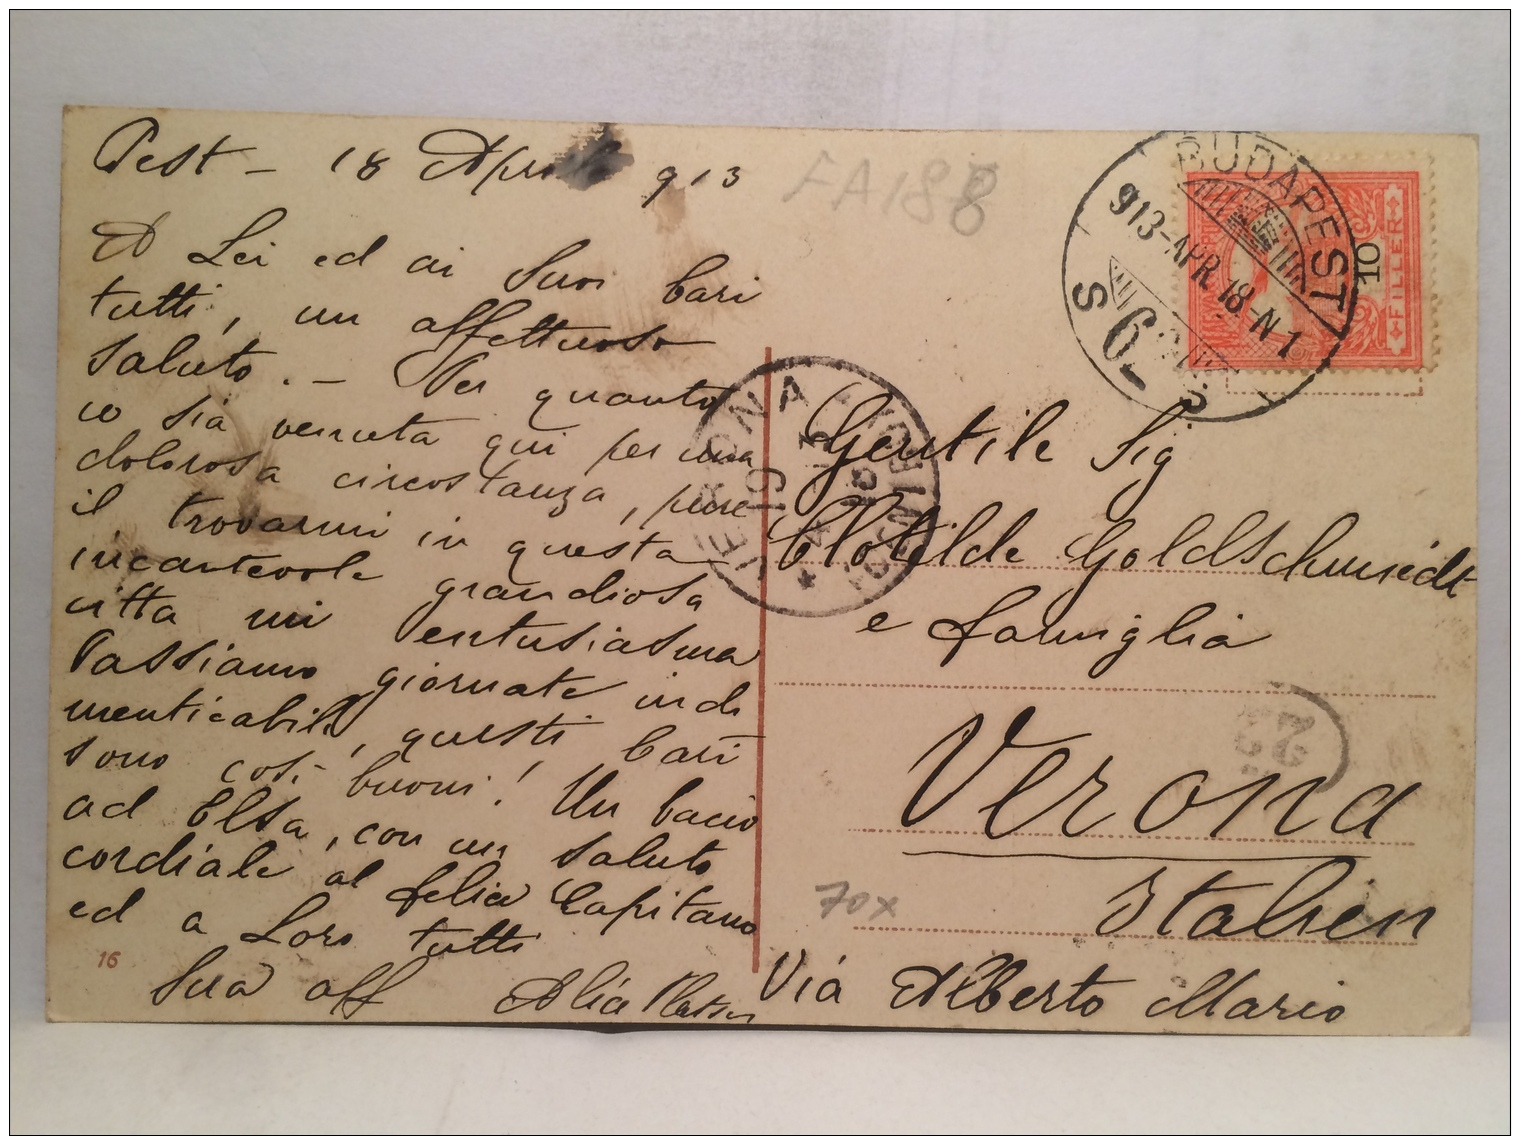 Pest - 18 Aprile 913
A Lei ed ai Suoi Cari
tutti, un affettuoso
saluto. - Per quanto
io sia venuta qui per una
dolorosa circostanza, pure
il trovarmi in questa
incantevole grandiosa
città mi entusiasma
Passiamo giornate indi
menticabili, questi Cari
sono così buoni! Un bacio
ad Elsa, con un saluto
cordiale al Capitano
ed a Loro tutti
Sua aff Alia
16
FA188
BUDAPEST
913-APR.18-N1
6
10
FILLER
VERONA
19 4 13
Gentile Sig
Clotilde Goldschmiedt
e famiglia
Verona
Italien
70x
Via Alberto Mario